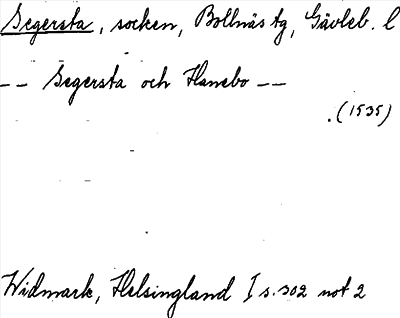 Segersta, socken, Bollnäs tg, Gävleb. l
-- Segersta och Hanebo --
.(1535)
Widmark, Helsingland I s. 302 not 2